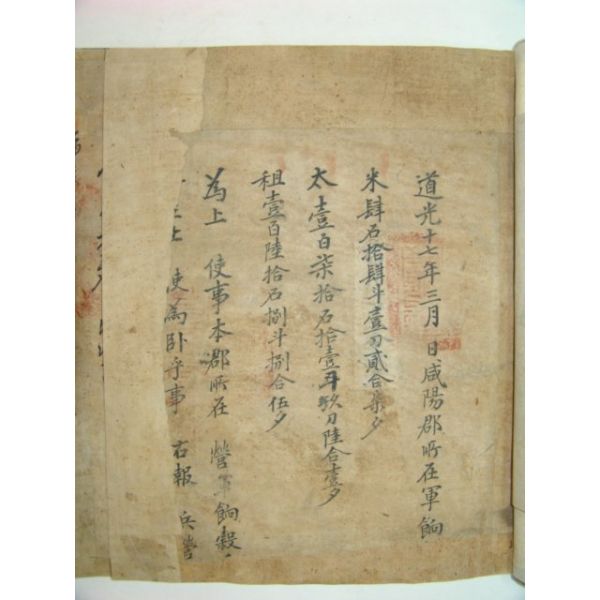 道光十七年三月 日咸陽郡所在軍餉
米肆石拾肆斗壹刀貳合柒夕
太壹百柒拾石拾壹斗玖刀陸合壹夕
租壹百陸拾石捌斗捌合伍夕
為上 使事本郡所在 營軍餉穀
上 使為卧乎事 右報 兵營